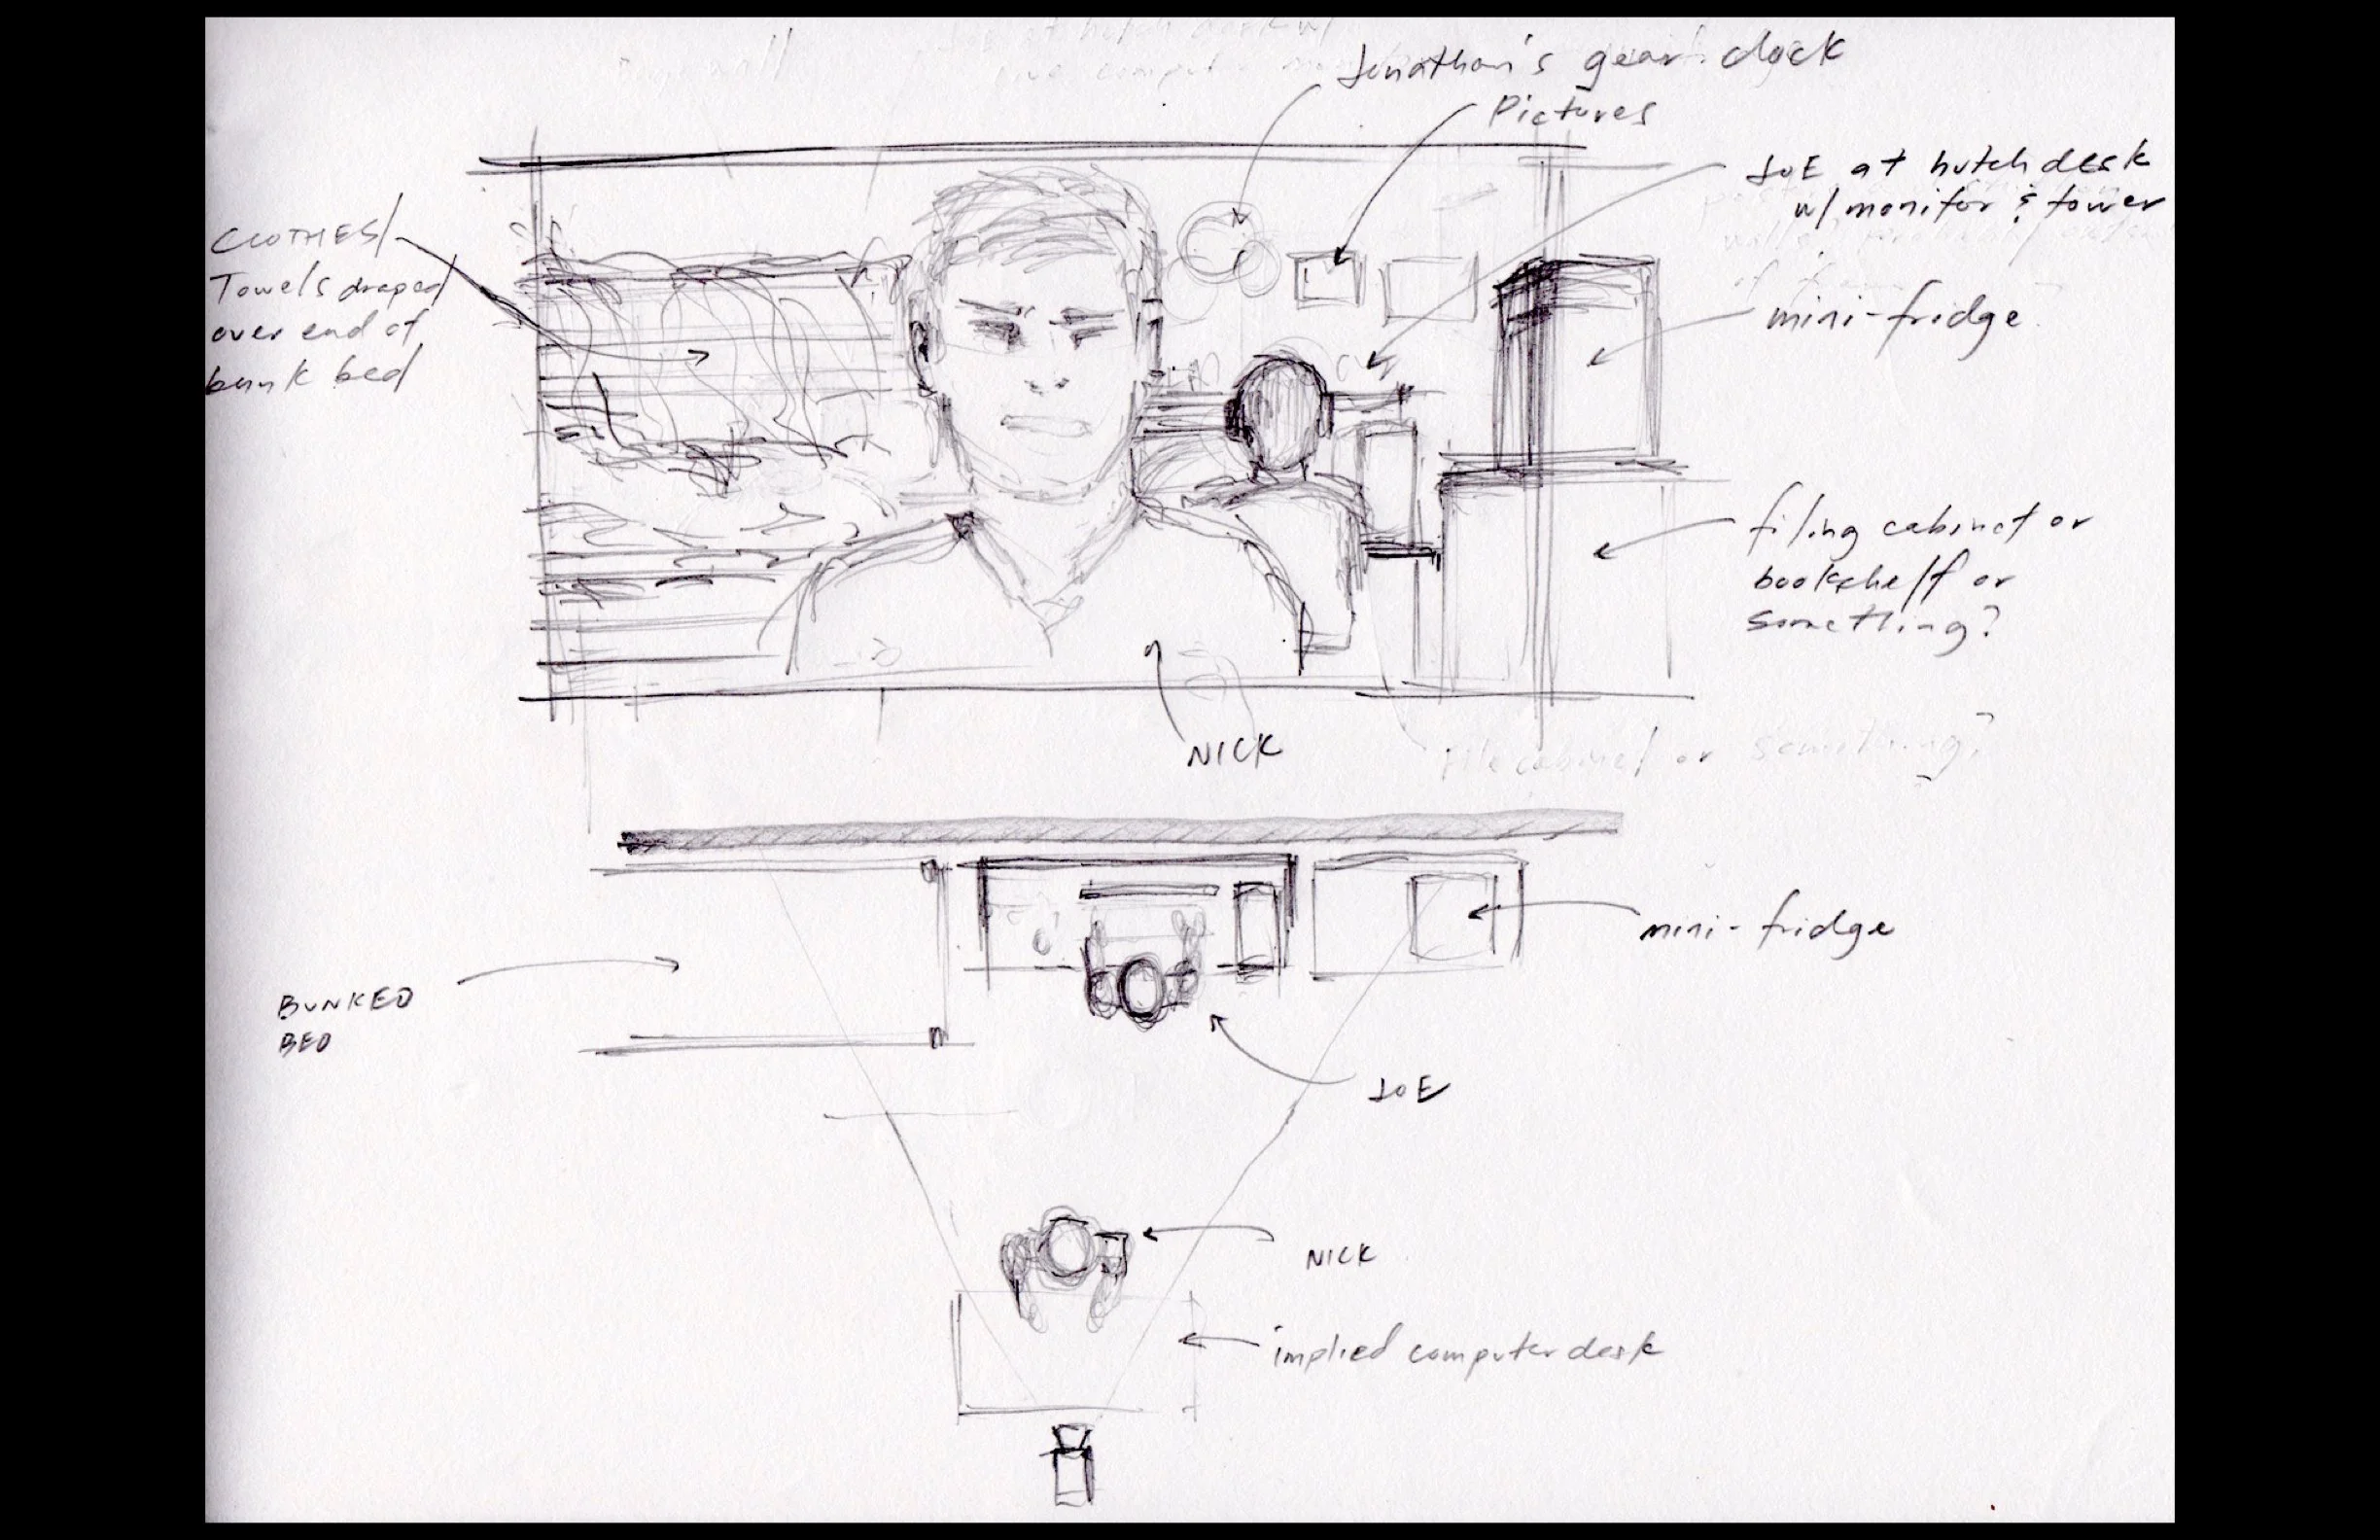 Jonathan's gear clock
Pictures
JOE at hutch desk
w/ monitor & tower
mini-fridge
CLOTHES/
Towels draped
over end of
bunk bed
filing cabinet or
bookshelf or
something?
NICK
file cabinet or something?
mini-fridge
BUNKED
BED
JOE
NICK
implied computer desk